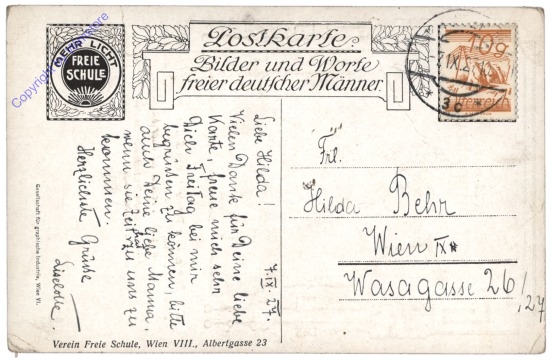 MEHR LICHT
FREIE
SCHULE
Postkarte
Bilder und Worte
freier deutscher Männer
10g
3c
7.IX.27.
Liebe Hilda!
Vielen Dank für Deine liebe
Karte, freue mich sehr
Dich Freitag bei mir
begrüssen zu können, bitte
auch Deine liebe Mama,
wenn sie Zeit hat zu uns zu
kommen
Herzlichste Grüsse
Liselotte.
Frl.
Hilda Behr
Wien IX
Wasagasse 26/
27
Gesellschaft für graphische Industrie, Wien VI.
Verein Freie Schule, Wien VIII., Albertgasse 23
Copyright